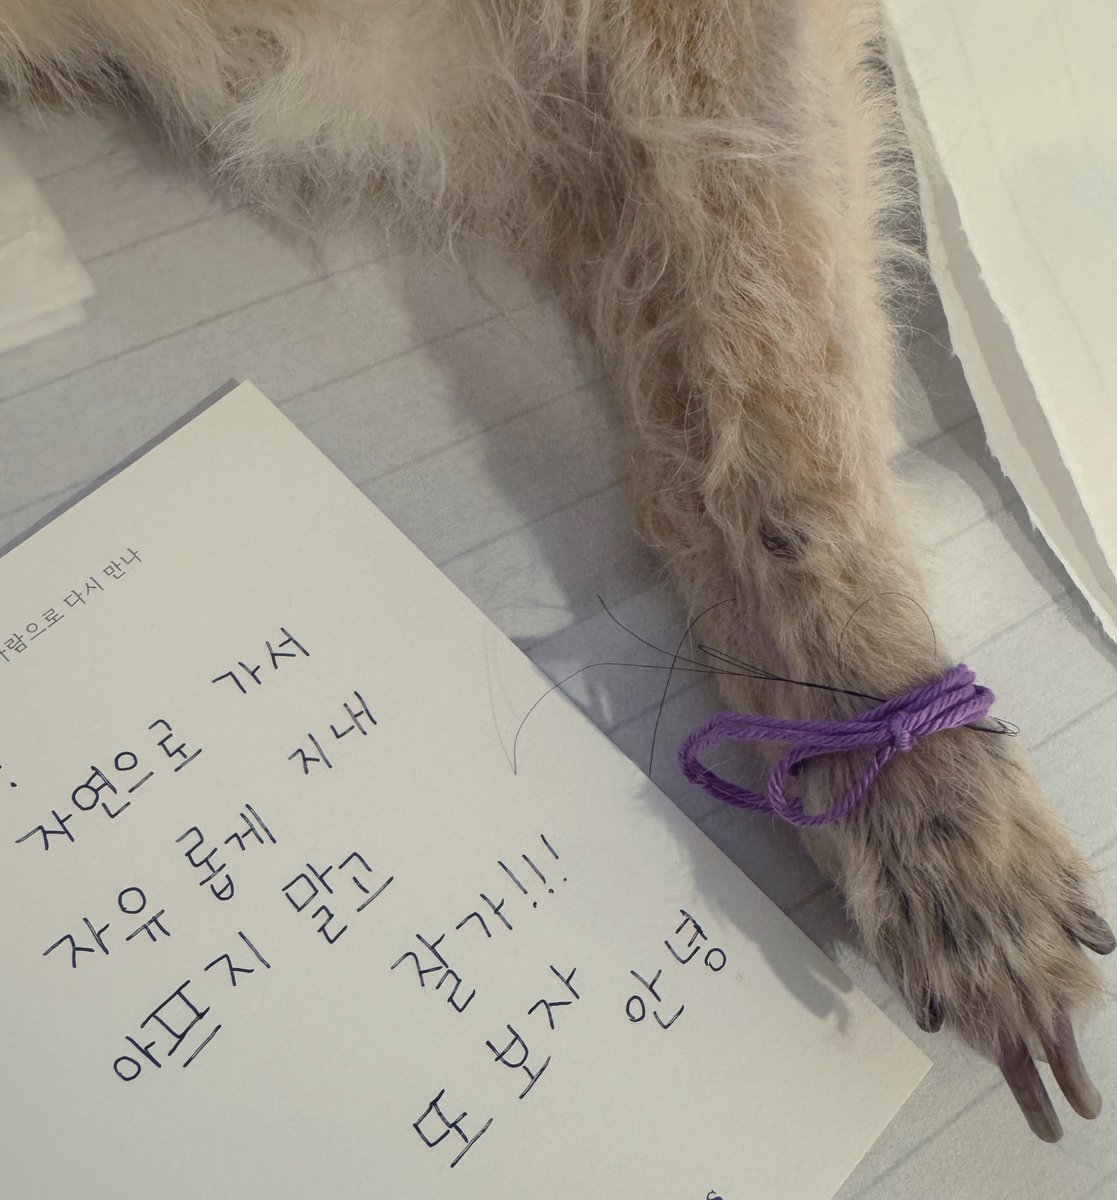 사람으로 다시 만나
자연으로 가서
자유 롭게 지내
아프지 말고
잘가!!!
또 보자 안녕